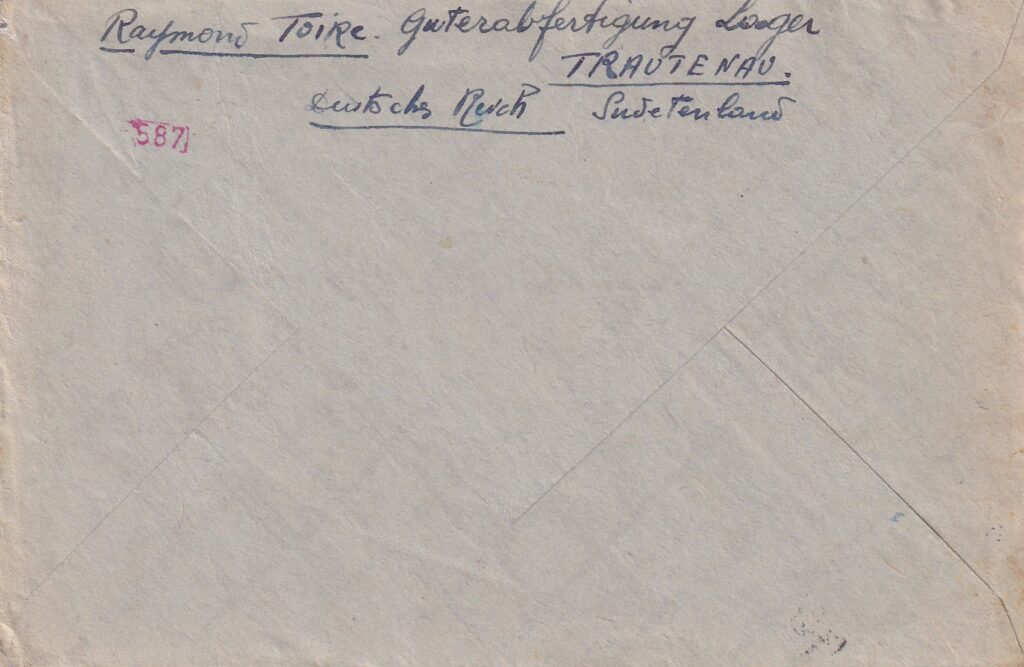 Raymond Toire. Guterabfertigung Lager
TRAUTENAU.
Deutsches Reich Sudetenland
587